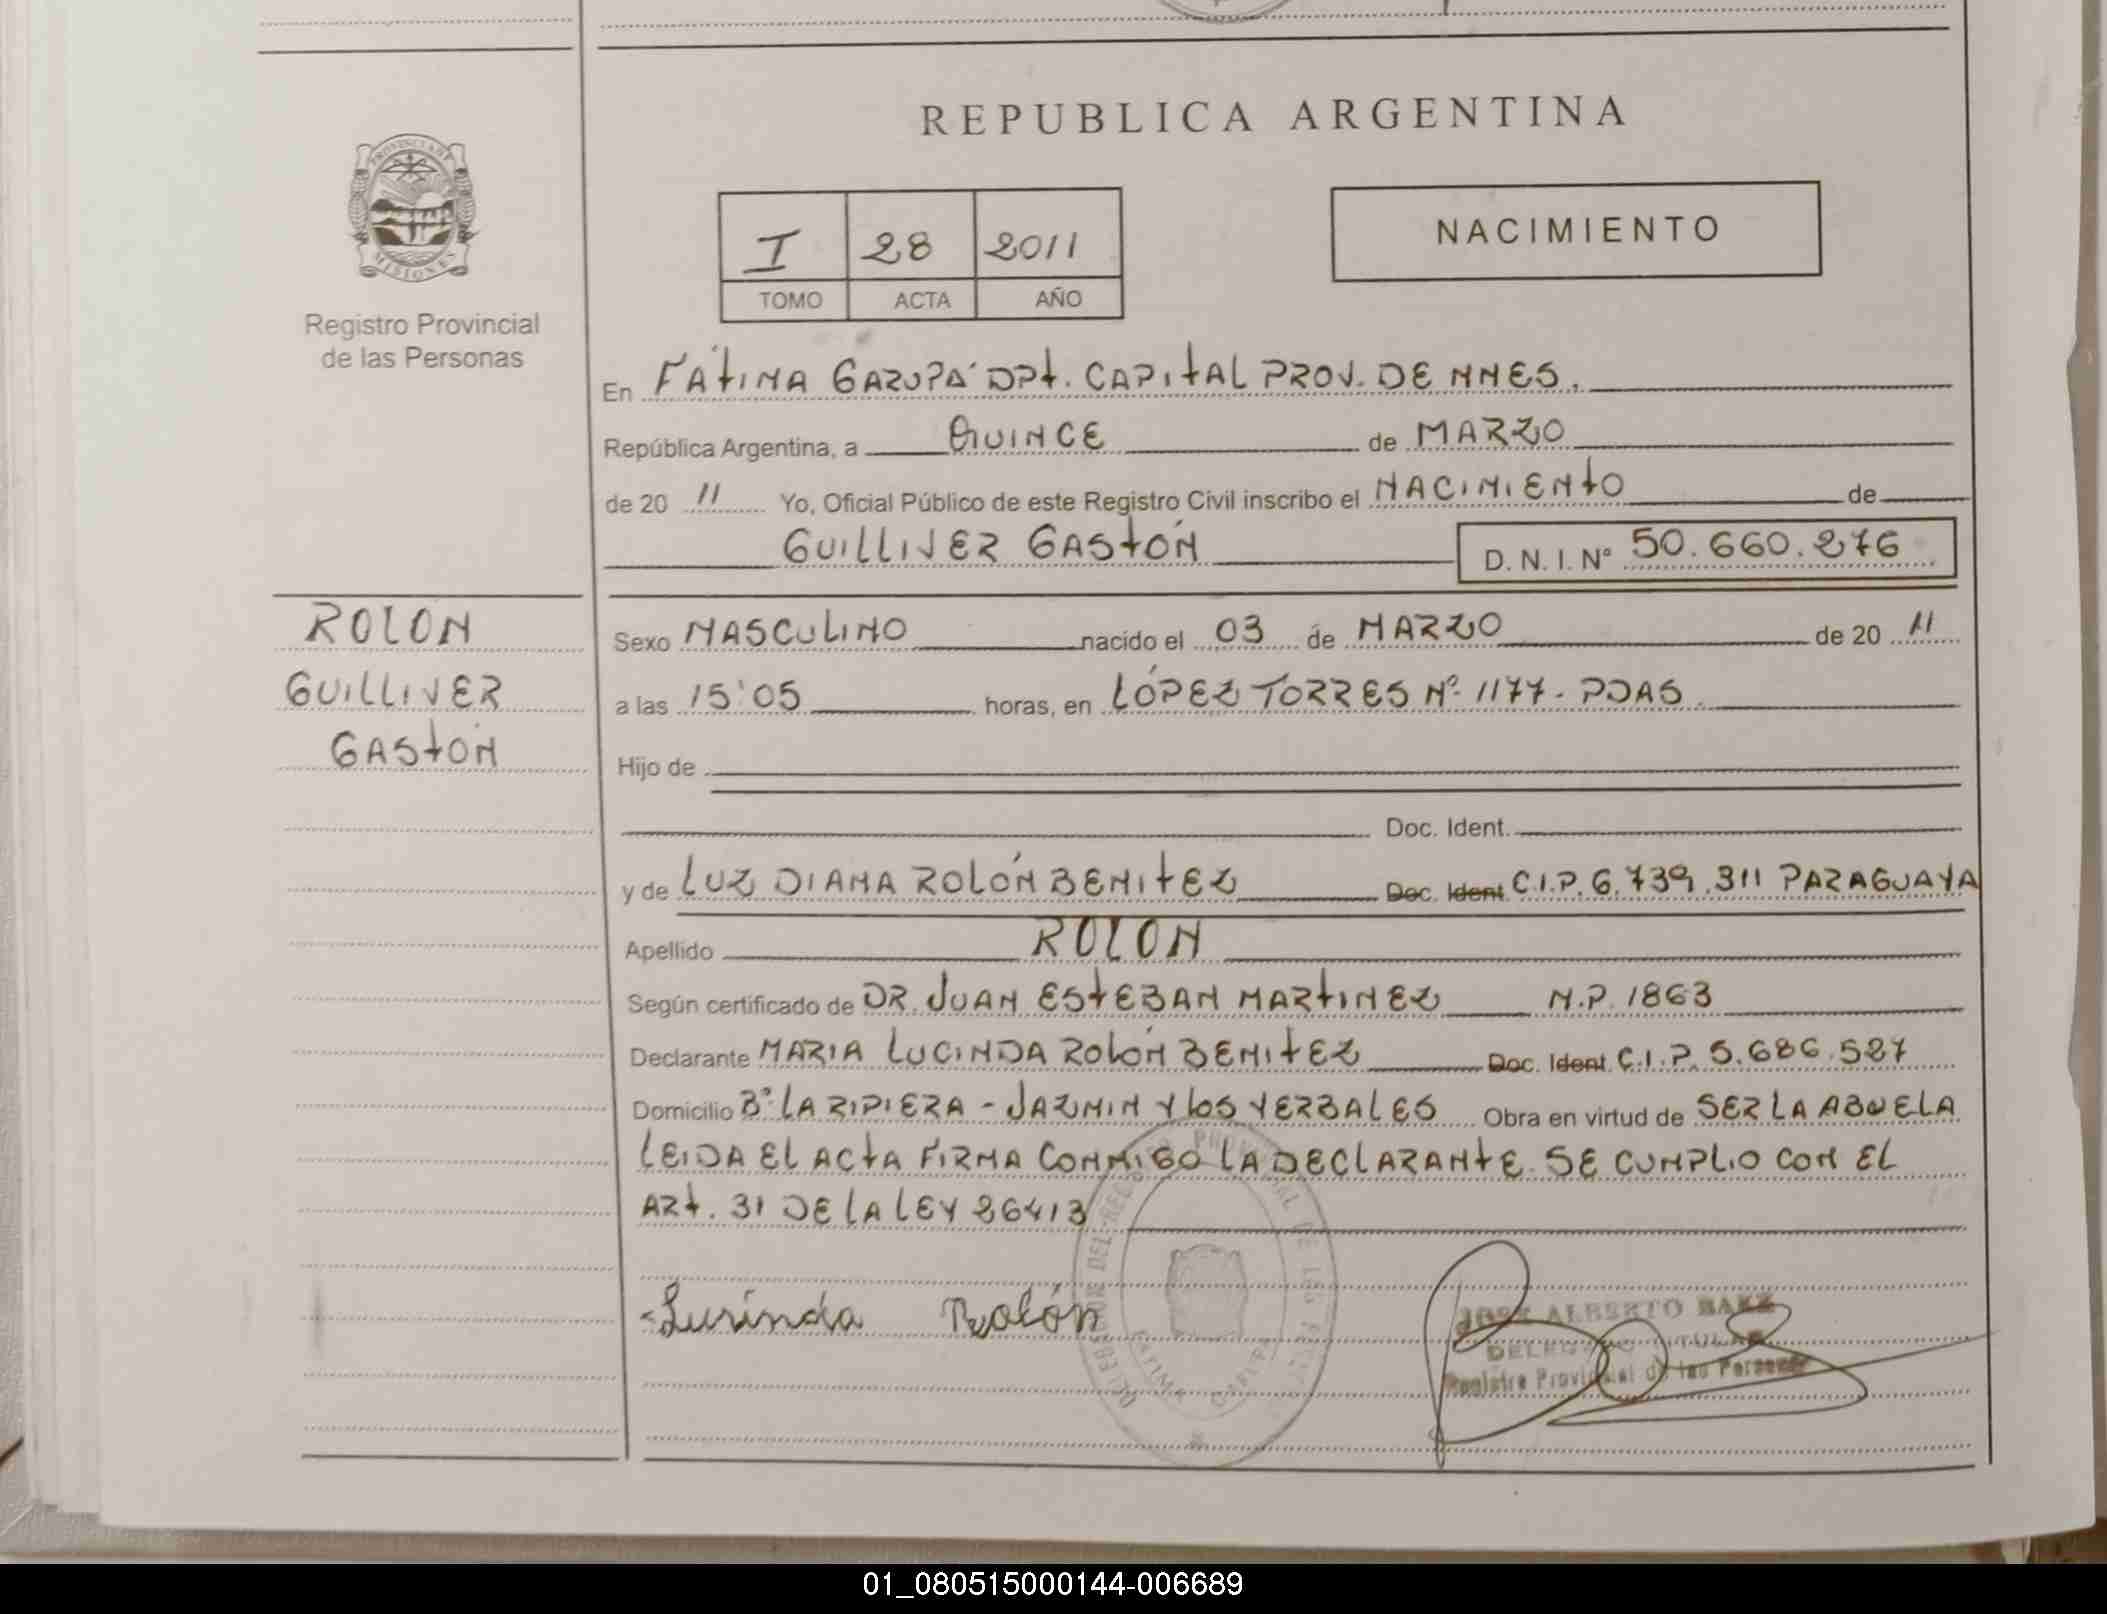 REPUBLICA ARGENTINA
PROVINCIA DE MISIONES
Registro Provincial
de las Personas
I 28 2011
TOMO ACTA AÑO
NACIMIENTO
En FÁTIMA GARUPÁ DPT. CAPITAL PROV. DE MNES.
República Argentina, a QUINCE de MARZO
de 20 11 Yo, Oficial Público de este Registro Civil inscribo el NACIMIENTO de
GUILLIVER GASTÓN D. N. I. Nº 50.660.276
ROLON
GUILLIVER
GASTÓN
Sexo MASCULINO nacido el 03 de MARZO de 20 11
a las 15:05 horas, en LÓPEZ TORRES Nº 1177 - PDAS.
Hijo de
Doc. Ident.
y de LUZ DIANA ROLÓN BENITEZ Doc. Ident. C.I.P. 6.739.311 PARAGUAYA
Apellido ROLON
Según certificado de DR. JUAN ESTEBAN MARTINEZ M.P. 1863
Declarante MARIA LUCINDA ROLÓN BENITEZ Doc. Ident. C.I.P. 5.686.527
Domicilio Bº LA RIPIERA - JAZMIN Y LOS YERBALES Obra en virtud de SER LA ABUELA
LEIDA EL ACTA FIRMA CONMIGO LA DECLARANTE. SE CUMPLIO CON EL
ART. 31 DE LA LEY 26413
Lusinda Rolón
JOSE ALBERTO BAEZ
DELEGADO TITULAR
Registro Provincial de las Personas
01_080515000144-006689